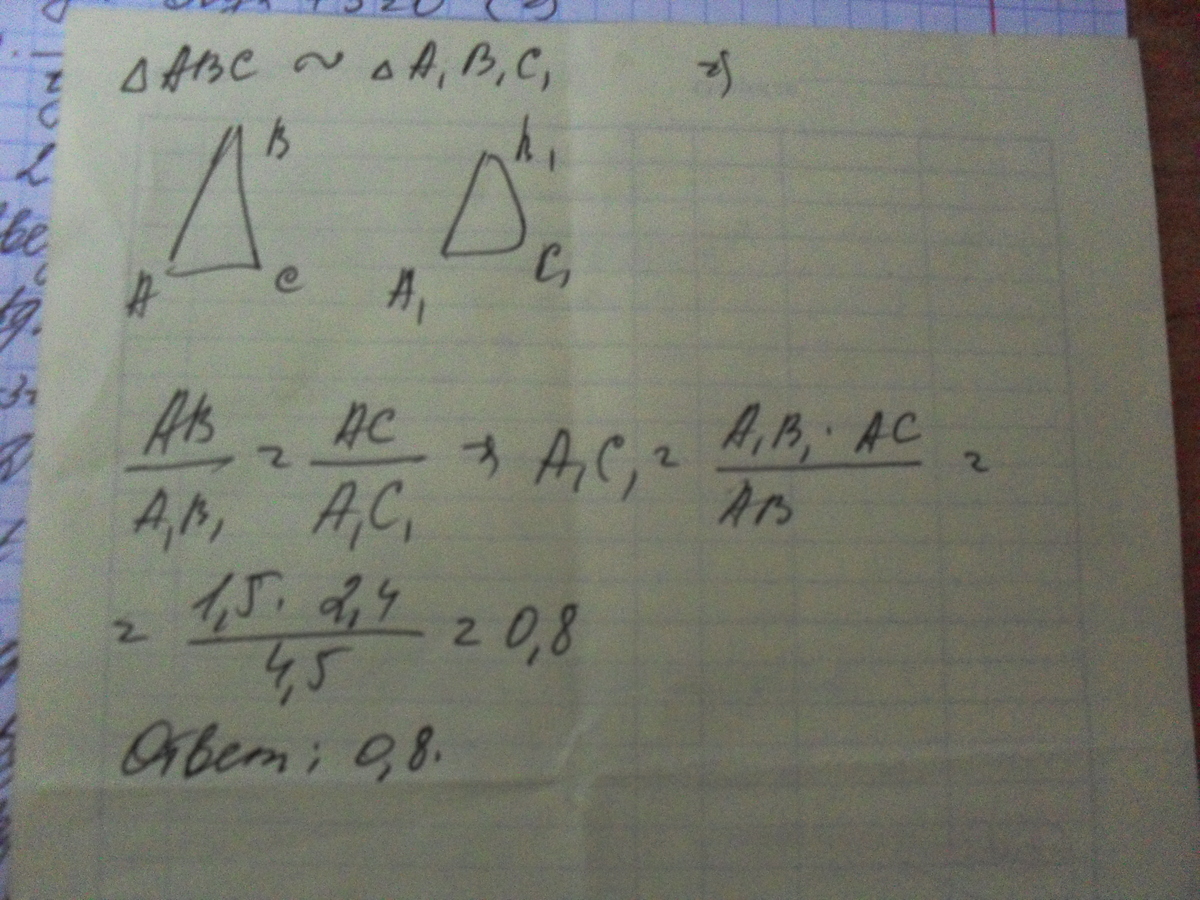 △ABC ~ △A₁B₁C₁ 2)
B B₁
A C A₁ C₁
AB/A₁B₁ = AC/A₁C₁ ⇒ A₁C₁ = A₁B₁ · AC/AB =
= 1,5 · 2,4/4,5 = 0,8
Ответ: 0,8.